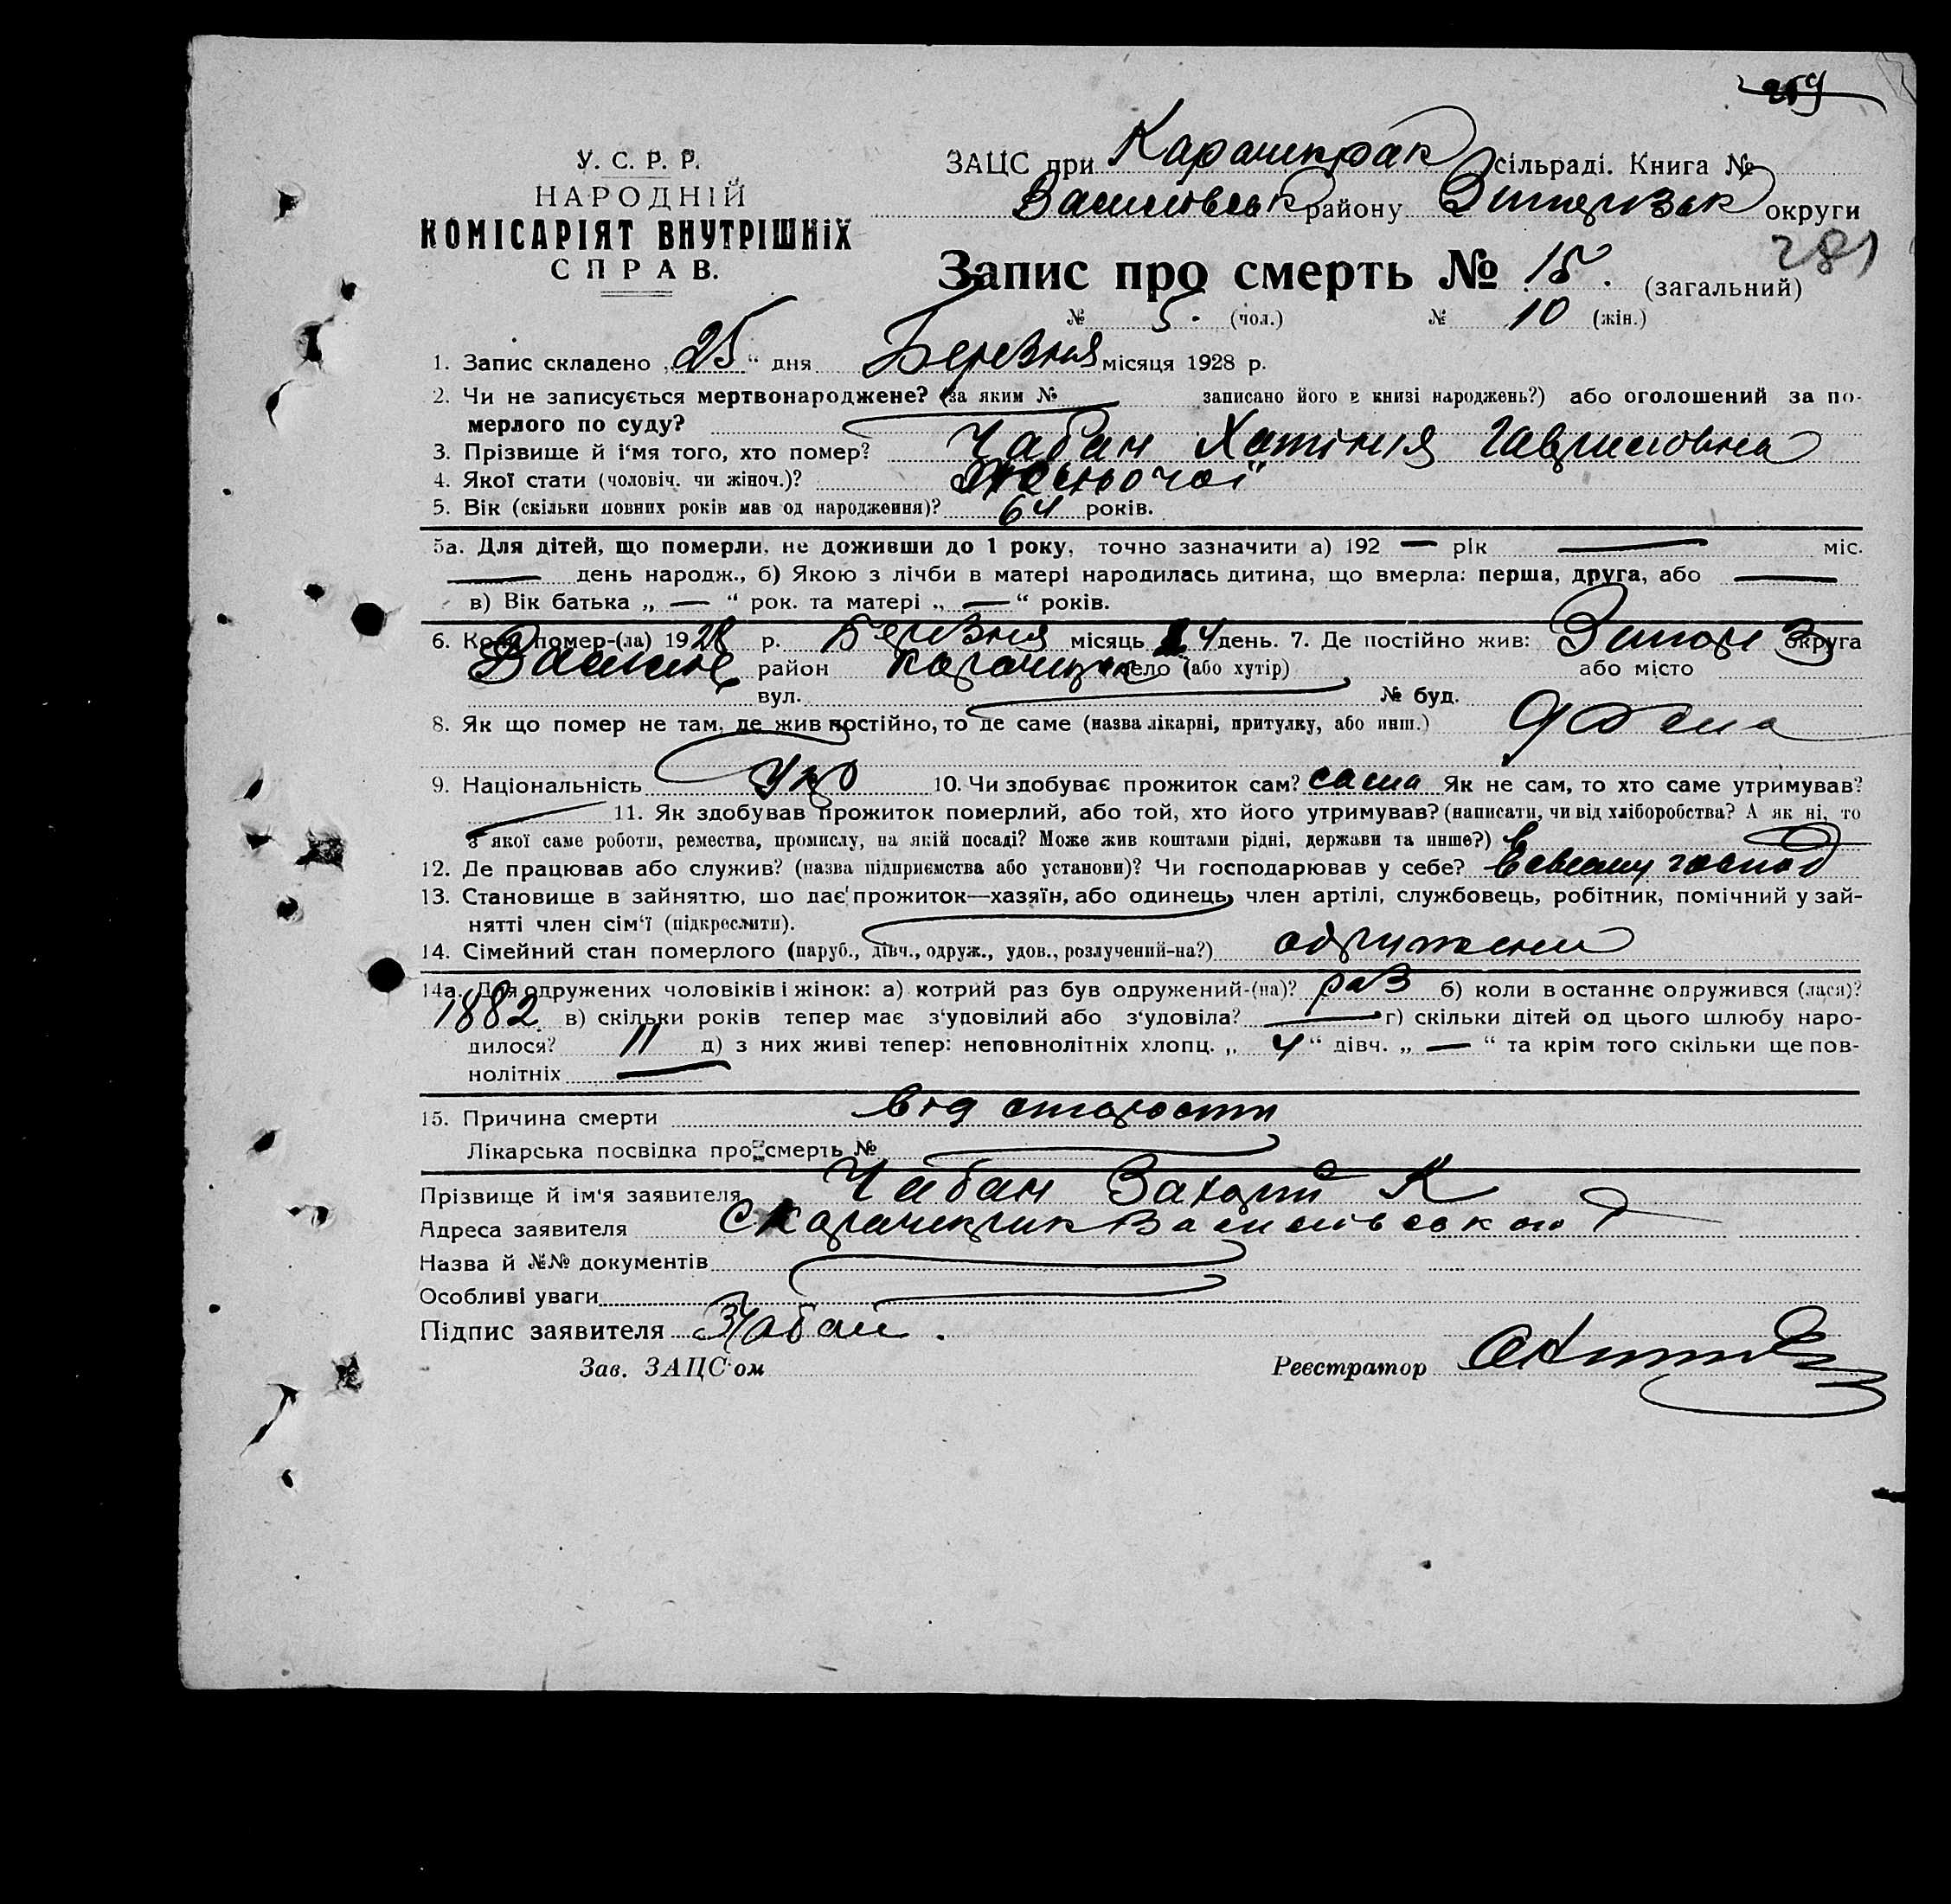 259
У. С. Р. Р.
НАРОДНІЙ
КОМІСАРІЯТ ВНУТРІШНІХ
СПРАВ.
ЗАЦС при Карачекрак сільраді. Книга №
Василівськ району Запорізьк округи
281
Запис про смерть № 15. (загальний)
№ 5. (чол.) № 10 (жін.)
1. Запис складено „25“ дня Березня місяця 1928 р.
2. Чи не записується мертвонароджене? (за яким № записано його в книзі народжень?) або оголошений за по-
мерлого по суду?
3. Прізвище й і'мя того, хто помер? Чабан Хотіния Гавриловна
4. Якої стати (чоловіч. чи жіноч.)? Жсньочої
5. Вік (скільки повних років мав од народження)? 64 років.
5а. Для дітей, що померли, не доживши до 1 року, точно зазначити а) 192 — рік — міс.
— день народж., б) Якою з лічби в матері народилась дитина, що вмерла: перша, друга, або —
в) Вік батька „ — “ рок. та матері „ — “ років.
6. Коли помер-(ла) 1928 р. Березня місяць 24 день. 7. Де постійно жив: Запорі округа
Василів район Карачекр село (або хутір) або місто
вул. № буд.
8. Як що помер не там, де жив постійно, то де саме (назва лікарні, притулку, або инш.) Дома
9. Національність Укр 10. Чи здобуває прожиток сам? сама Як не сам, то хто саме утримував?
11. Як здобував прожиток померлий, або той, хто його утримував? (написати, чи від хліборобства? А як ні, то
з якої саме роботи, ремества, промислу, на якій посаді? Може жив коштами рідні, держави та инше?)
12. Де працював або служив? (назва підприємства або установи)? Чи господарював у себе? В свому господ
13. Становище в зайняттю, шо дає прожиток—хазяїн, або одинець, член артілі, службовець, робітник, помічний у зай-
нятті член сім'ї (підкреслити).
14. Сімейний стан померлого (паруб., дівч., одруж., удов., розлучений-на?) одружени
14а. Для одружених чоловіків і жінок: а) котрий раз був одружений-(на)? раз б) коли в останнє одружився (лася)?
1882 в) скільки років тепер має з'уповілий або з'удовіла? — г) скільки дітей од цього шлюбу наро-
дилося? 11 д) з них живі тепер: неповнолітніх хлопц. „ 4 “ дівч. „ — “ та крім того скільки ще пов-
нолітніх —
15. Причина смерти від старости
Лікарська посвідка про смерть №
Прізвище й ім'я заявителя Чабан Захарій К
Адреса заявителя С Карачекрик Василівського Р
Назва й №№ документів
Особливі уваги
Підпис заявителя ЗЧабан.
Зав. ЗАЦС'ом
Реєстратор